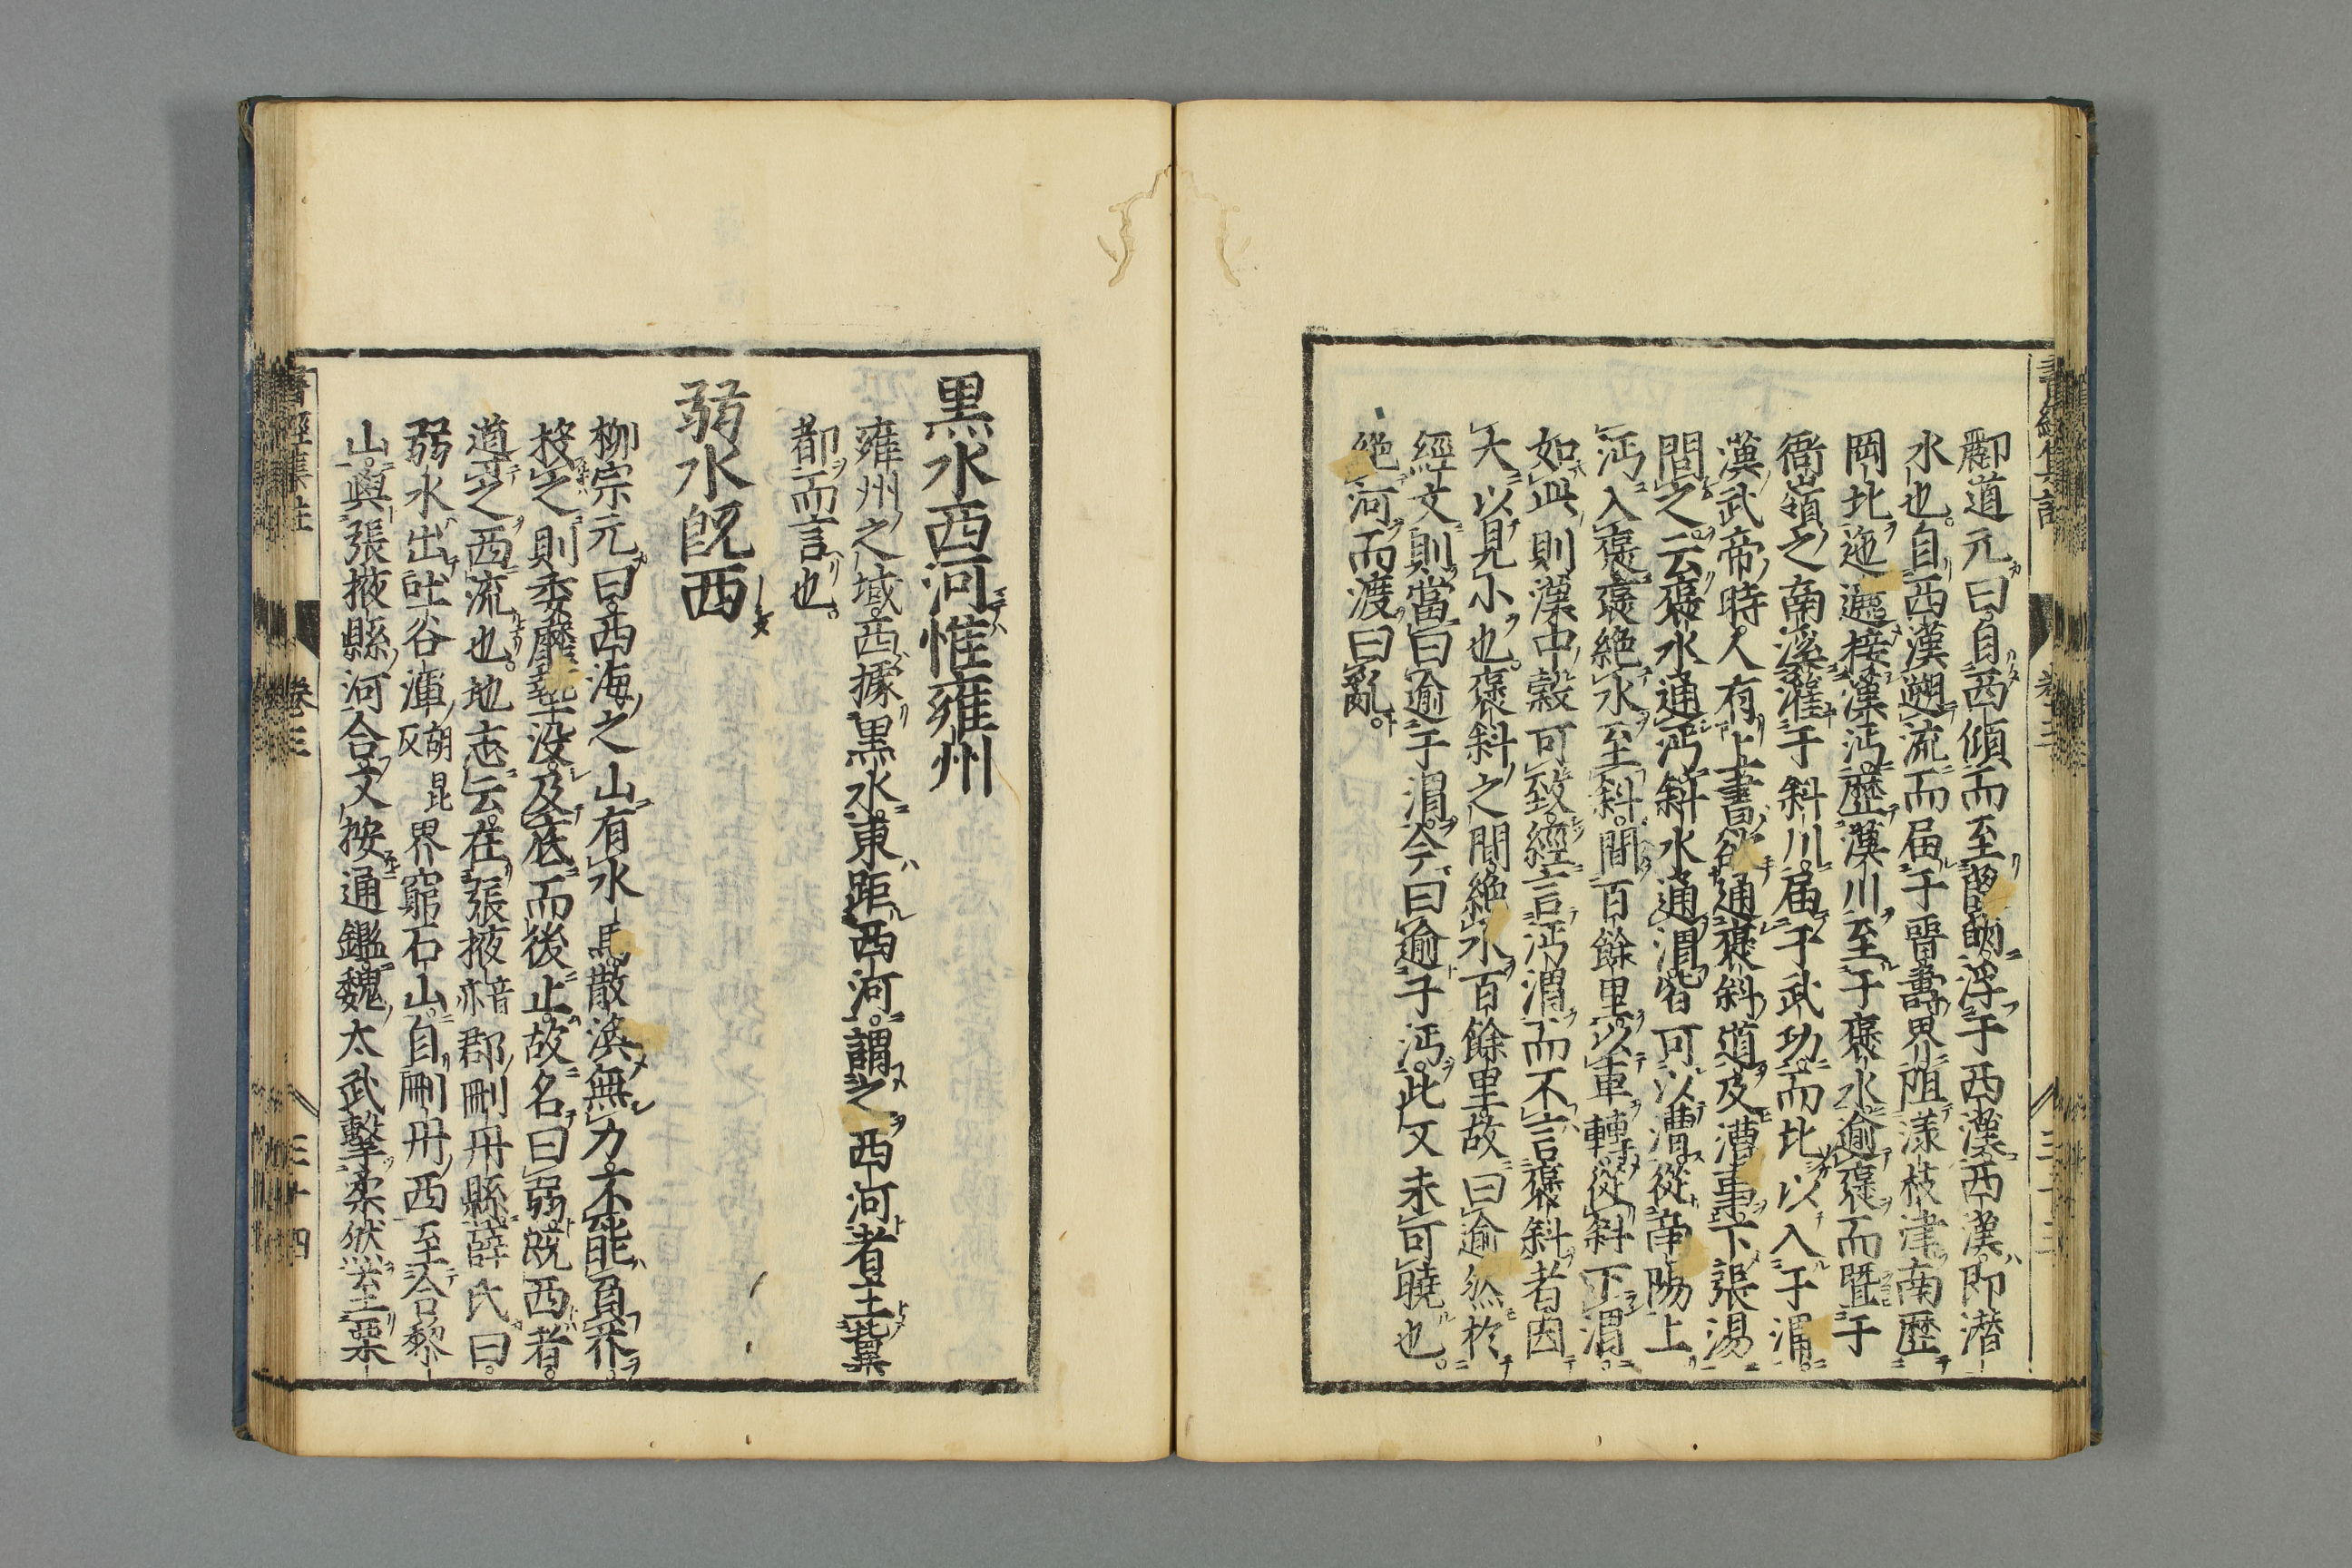 酈道元曰自西傾而至葭萌浮于西漢西漢即潛
水也自西漢遡流而届于晉壽界阻漾枝津南歷
岡北迤邐接漢沔歷漢川至于褒水逾褒而暨于
衙嶺之南溪灌于斜川届于武功而北以入于渭
漢武帝時人有上書欲通褒斜道及漕事下張湯
問之云褒水通沔斜水通渭皆可以漕從南陽上
沔入褒褒絶水至斜間百餘里以車轉從斜下渭
如此則漢中穀可致經言沔渭而不言褒斜者因
大以見小也褒斜之間絶水百餘里故曰逾然於
經文則當曰逾于渭今曰逾于沔此又未可曉也
絶河而渡曰亂
黒水西河惟雍州
雍州之域西據黒水東距西河謂之西河者主冀
都而言也
弱水既西
柳宗元曰西海之山有水焉散渙無力不能負芥
投之則委靡墊没及底而後止故名曰弱既西者
導之西流也地志云在張掖音亦郡刪丹縣薛氏曰
弱水出吐谷渾胡昆反界窮石山自刪丹西至合黎
山與張掖縣河合又按通鑑魏太武擊柔然至栗
書經集註 卷三 三十四